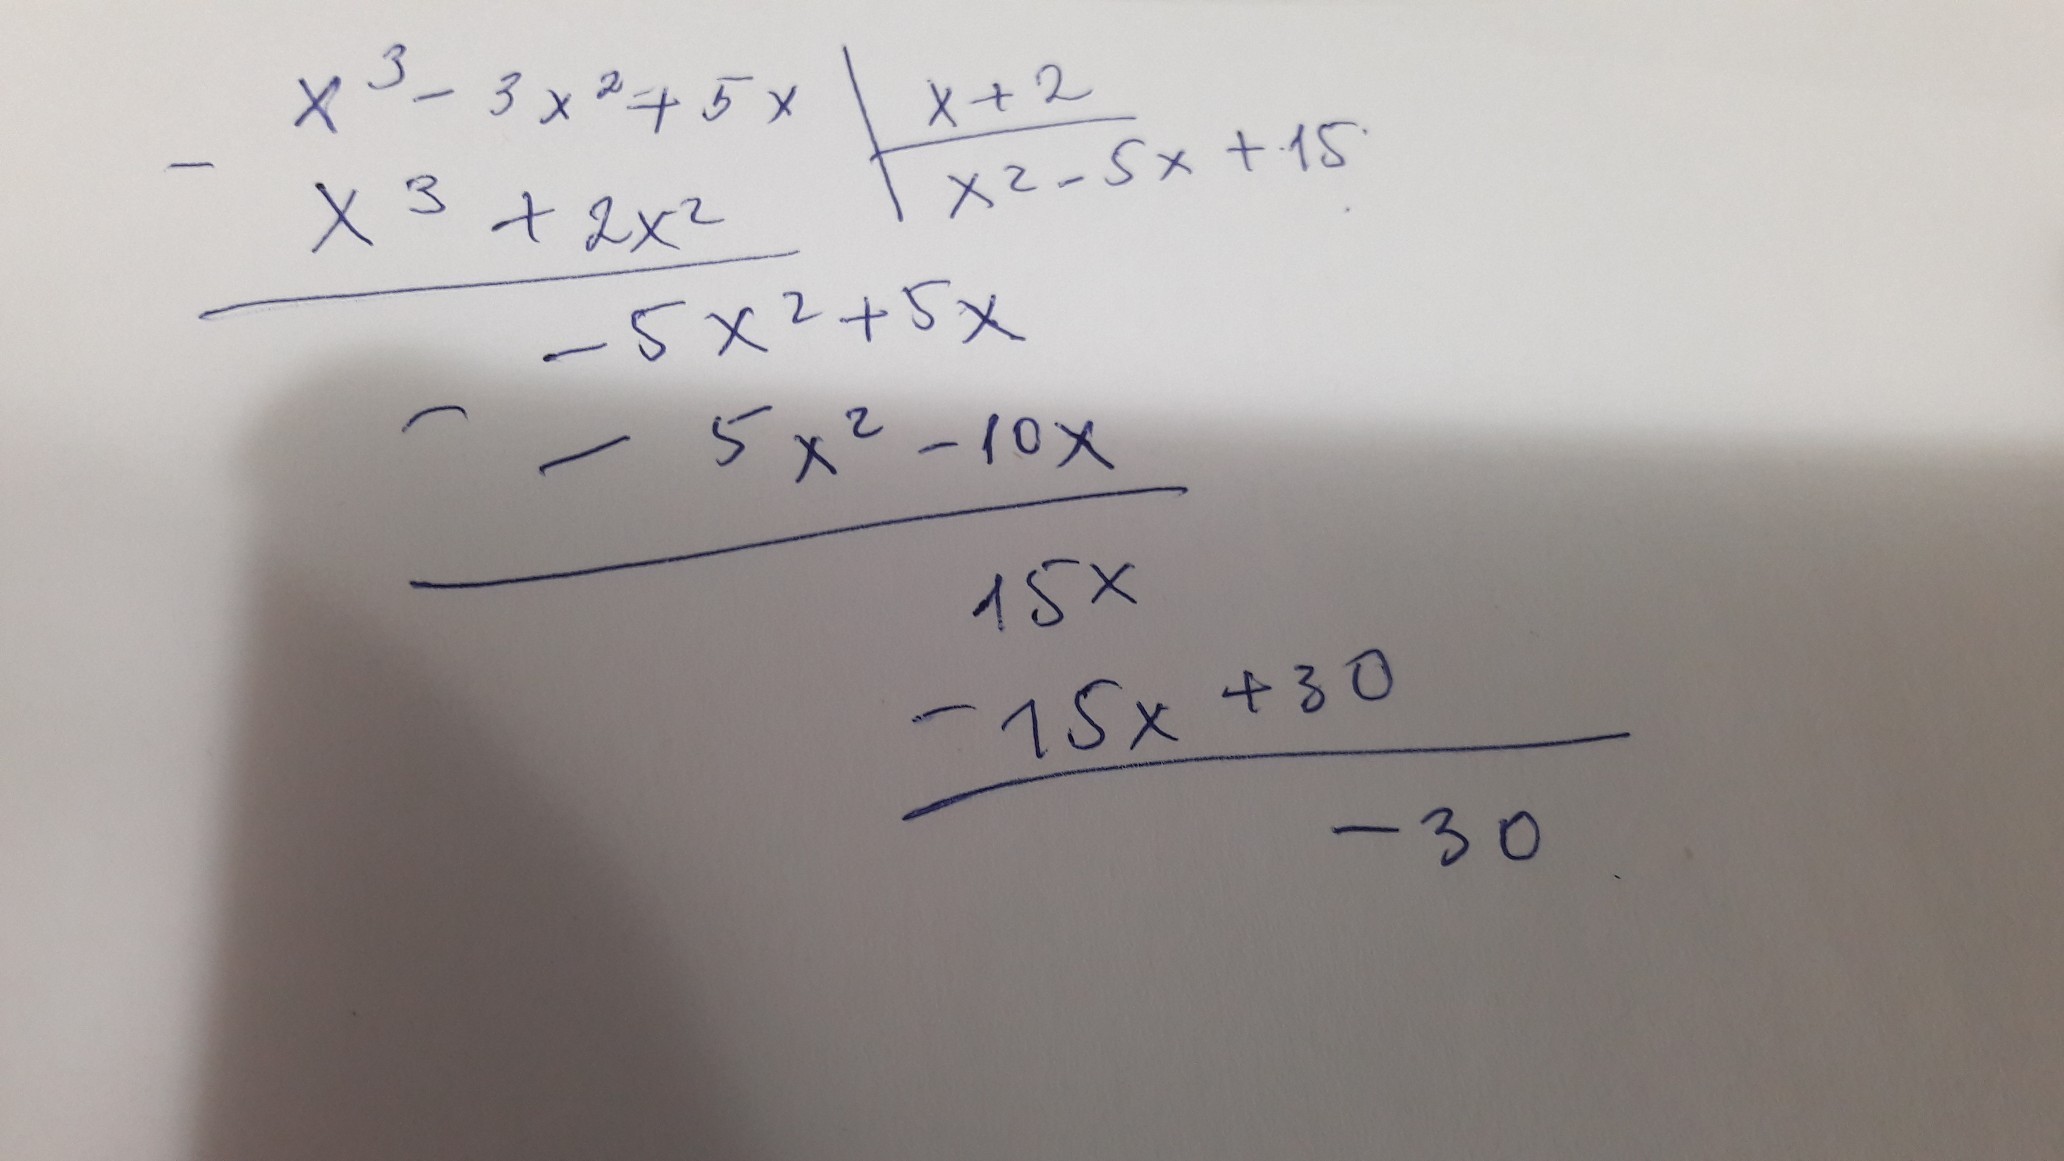 x³ - 3x² + 5x | x + 2
- x³ + 2x² | x² - 5x + 15
- 5x² + 5x
- - 5x² - 10x
15x
- 15x + 30
- 30